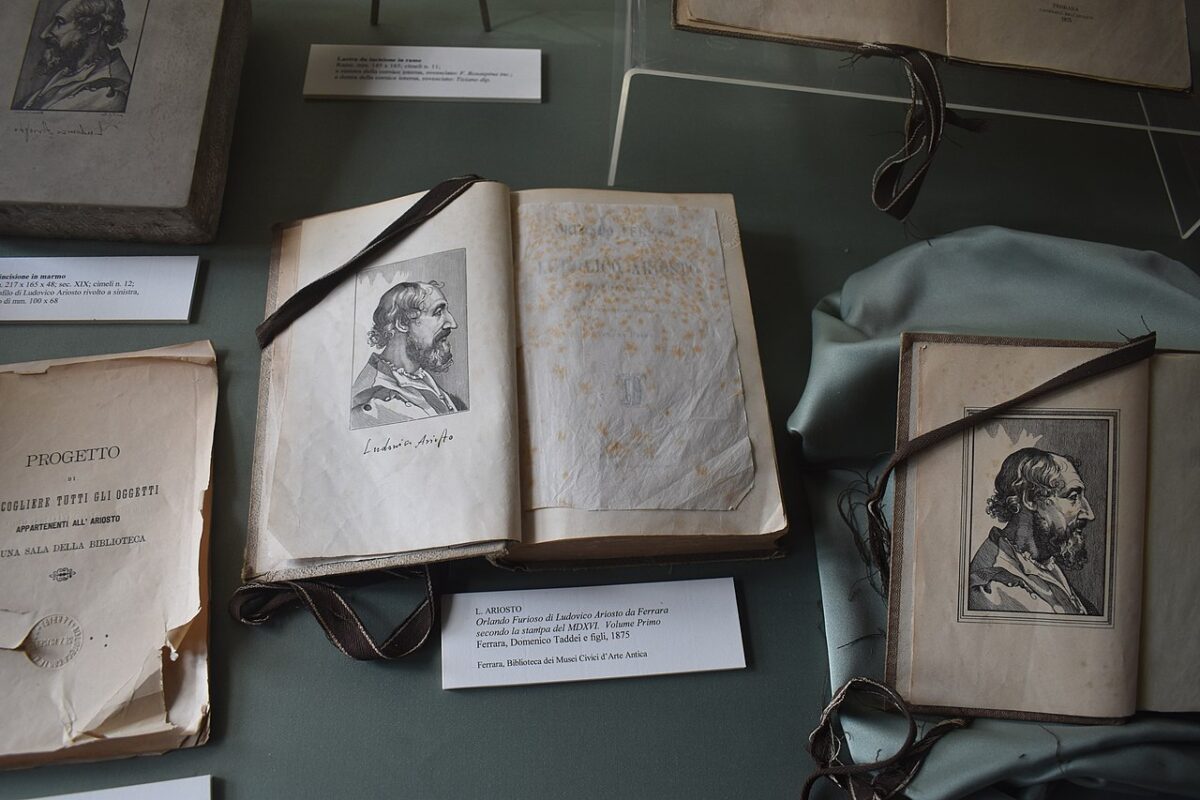 FERRARA
1875
Lastra da incisione in rame
Rame, mm. 165 x 165; cimeli n. 11;
a sinistra della cornice interna, rovesciato: F. Rosaspina inc.;
a destra della cornice interna, rovesciato: Tiziano dip.
incisione in marmo
217 x 165 x 48; sec. XIX; cimeli n. 12;
filo di Ludovico Ariosto rivolto a sinistra,
o di mm. 100 x 68
ORLANDO FURIOSO
LUDOVICO ARIOSTO
Ludovico Ariosto
PROGETTO
DI
COGLIERE TUTTI GLI OGGETTI
APPARTENENTI ALL' ARIOSTO
UNA SALA DELLA BIBLIOTECA
L. ARIOSTO
Orlando Furioso di Ludovico Ariosto da Ferrara
secondo la stampa del MDXVI. Volume Primo
Ferrara, Domenico Taddei e figli, 1875
Ferrara, Biblioteca dei Musei Civici d'Arte Antica